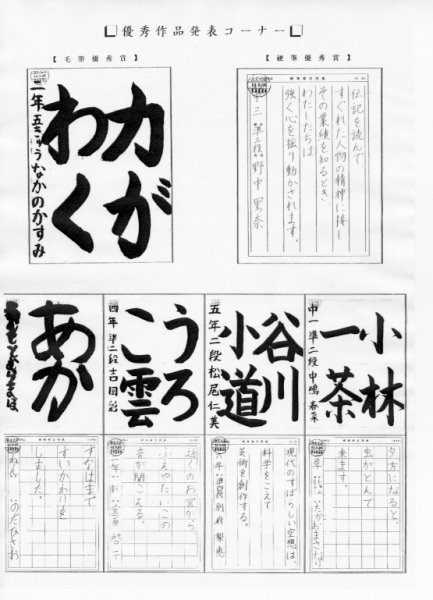 優秀作品発表コーナー
【毛筆優秀賞】
【硬筆優秀賞】
力が
わく
二年 五きゅう なかのかすみ
伝記を読んで
すぐれた人物の精神に接し
その業績を知るとき、
わたしたちは
強く心を揺り動かされます。
中三 準三段 野中 里奈
小林
一茶
中一 準二段 中嶋 春菜
谷川
小道
五年 二段 松尾仁美
うろ
こ雲
四年 準二段 吉岡 彩
あか
夕方になると、
虫がとんで
来ます。
現代のすばらしい空想は、
科学をこえて
芸術を創作する。
近くのお宮から、
ふえやたいこの
音が聞こえる。
すなはまで
すいかわりを
しました。